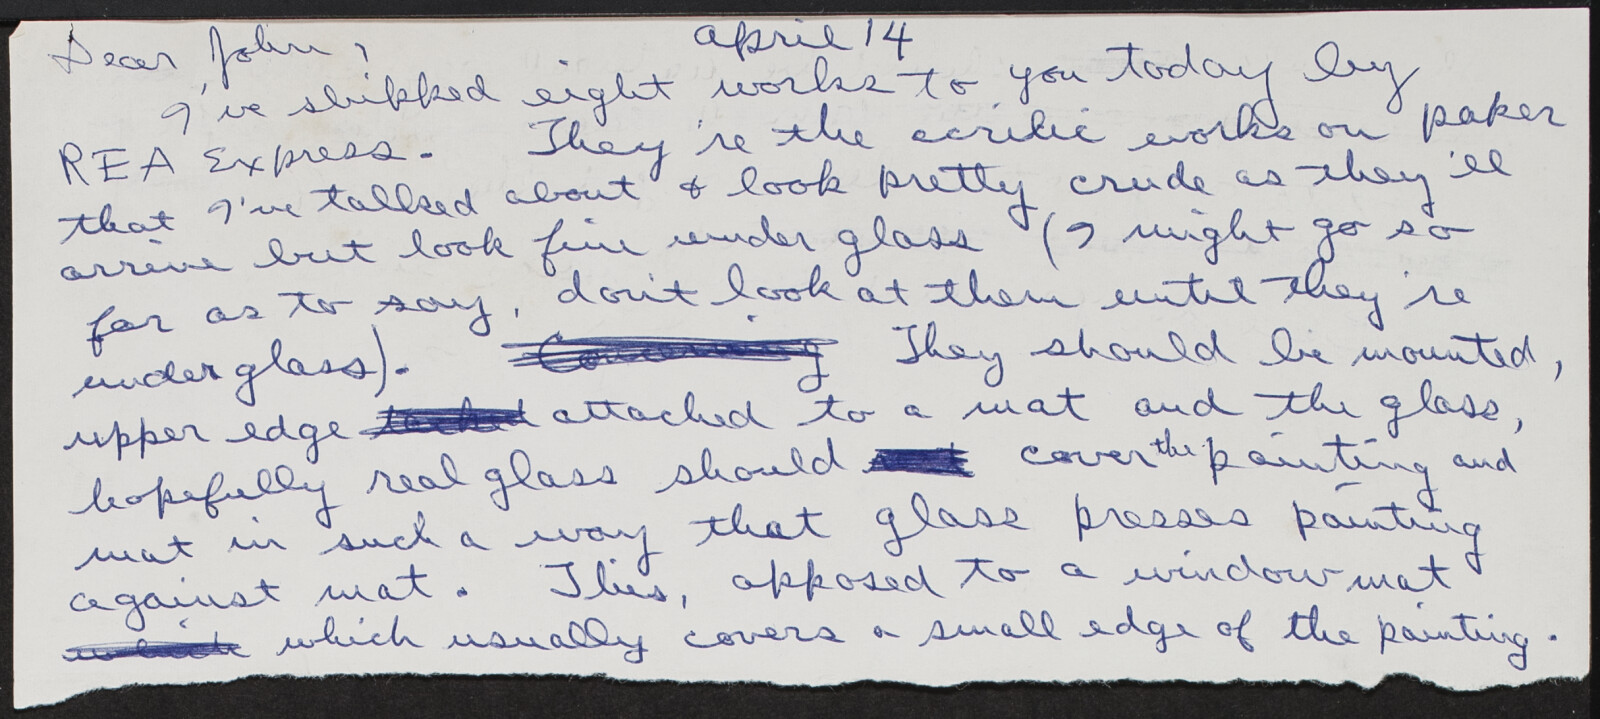 April 14
Dear John,
I've shipped eight works to you today by
REA Express. They're the acrilic works on paper
that I've talked about & look pretty crude as they'll
arrive but look fine under glass (I might go so
far as to say, don't look at them until they're
under glass). Concerning They should be mounted,
upper edge attached to a mat and the glass,
hopefully real glass should cover the painting and
mat in such a way that glass presses painting
against mat. This, opposed to a window mat
which which usually covers a small edge of the painting.